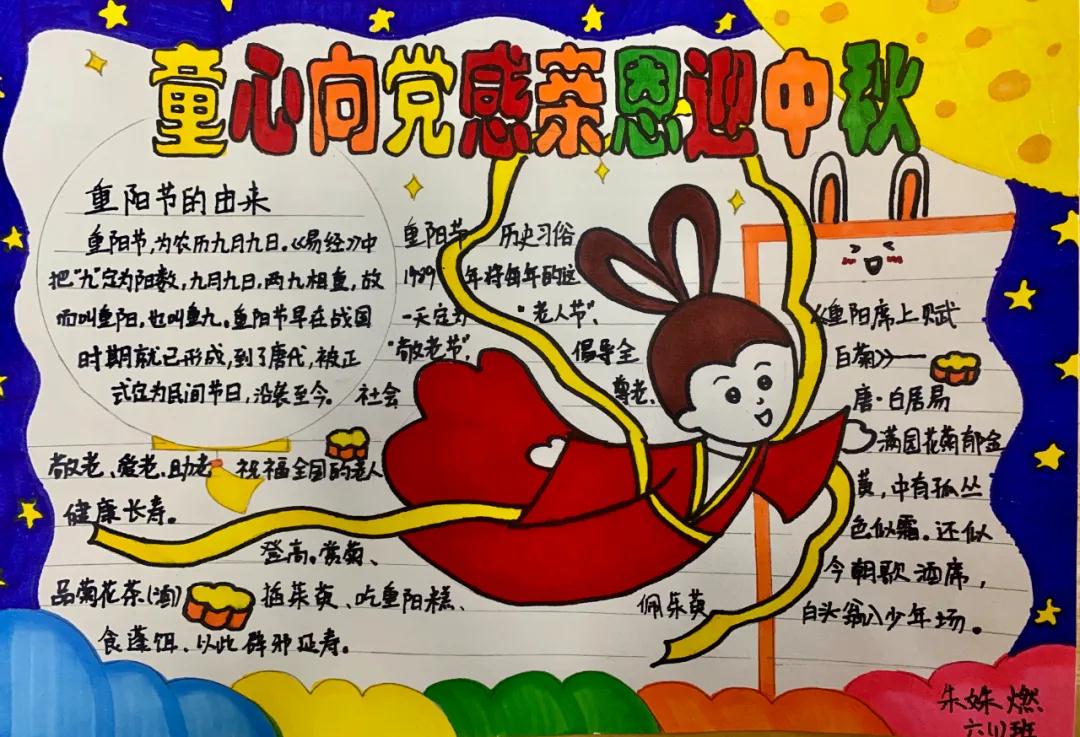 童心向党感亲恩迎中秋
重阳节的由来
重阳节,为农历九月九日。《易经》中
把“九”定为阳数,九月九日,两九相重,故
而叫重阳,也叫重九。重阳节早在战国
时期就已形成,到了唐代,被正
式定为民间节日,沿袭至今。
重阳节 历史习俗
1989 年将每年的这
一天定为 “老人节”、
“敬老节”, 倡导全
社会 尊老、
敬老、爱老、助老 祝福全国的老人
健康长寿。
登高。赏菊、
品菊花茶(酒) 插茱萸、吃重阳糕、 佩茱萸
食蓬饵、以此辟邪延寿。
《重阳席上赋
白菊》—
唐·白居易
满园花菊郁金
黄,中有孤丛
色似霜。还似
今朝歌酒席,
白头翁入少年场。
朱姝燃
六(1)班